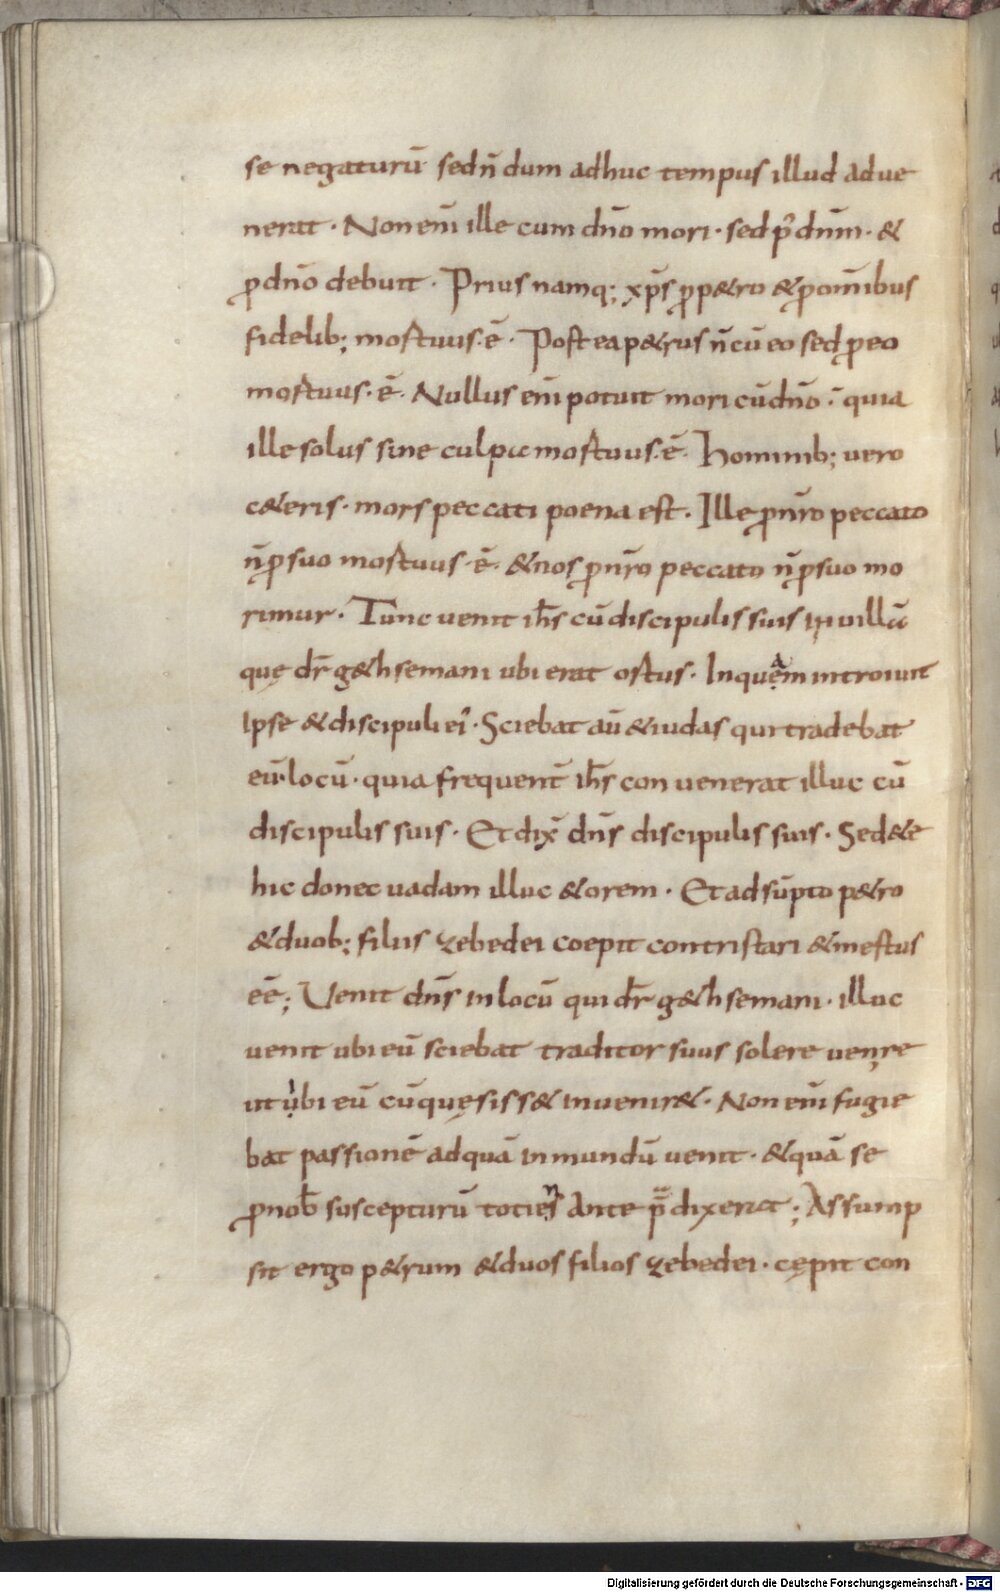 se negaturū sed n̄ dum adhuc tempus illud adue
nerat · Non eni̅ ille cum dn̄o mori · sed p̓ dnm̄ · &
ꝓ dn̄o debuit · Prius namq; xp̄s ꝓ p&ro & ꝓ om̄ibus
fidelib; mortuus · ē · Postea p&rus n̄ cū eo sed ꝓ eo
mortuus · ē · Nullus eni̅ potuit mori cū dn̄o · quia
ille solus sine culpa mortuus · ē · Hominib; uero
c&eris · mors peccati poena est · Ille ꝓ nr̄o peccato
n̄ ꝓ suo mortuus · ē · & nos ꝓ nr̄o peccato n̄ ꝓ suo mo
rimur · Tunc uenit ih̄s cū discipulis suis in uillā
quę dr̄ g&hsemani ubi erat ortus · In quẹᵃm introiuit
ipse & discipuli ei᾿ · Sciebat aū & iudas qui tradebat
eū · locū · quia frequent̄ ih̄s conuenerat illuc cū
discipulis suis · Et dix̄ dn̄s discipulis suis · Sed&e
hic donec uadam illuc & orem · Et adsūpto p&ro
& duob; filiis zebedei coepit contristari & mestus
eē; Uenit dn̄s in locū qui dr̄ g&hsemani · illuc
uenit ubi eū sciebat traditor suus solere uenire
ut ubi eū cū quęsiss& inuenir& · Non eni̅ fugie
bat passionē ad quā in mundū uenit · & quā se
ꝓ nob̄ suscepturū totieⁿs ante p̄dixerat; Assump
sit ergo p&rum & duos filios zebedei · cępit con
Digitalisierung gefördert durch die Deutsche Forschungsgemeinschaft - DFG